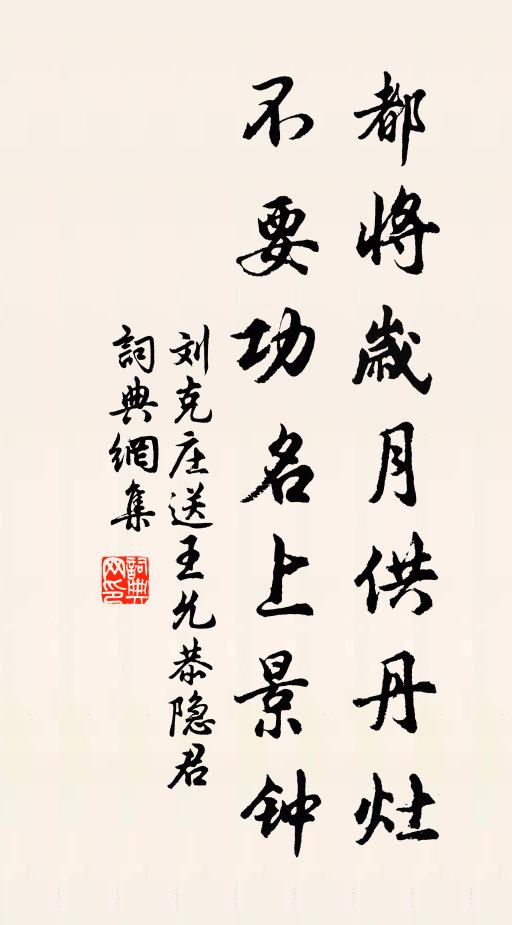 都將歲月供丹灶
不要功名上景钟
刘克庄送王允恭隐君
詞典網集
詞典网印